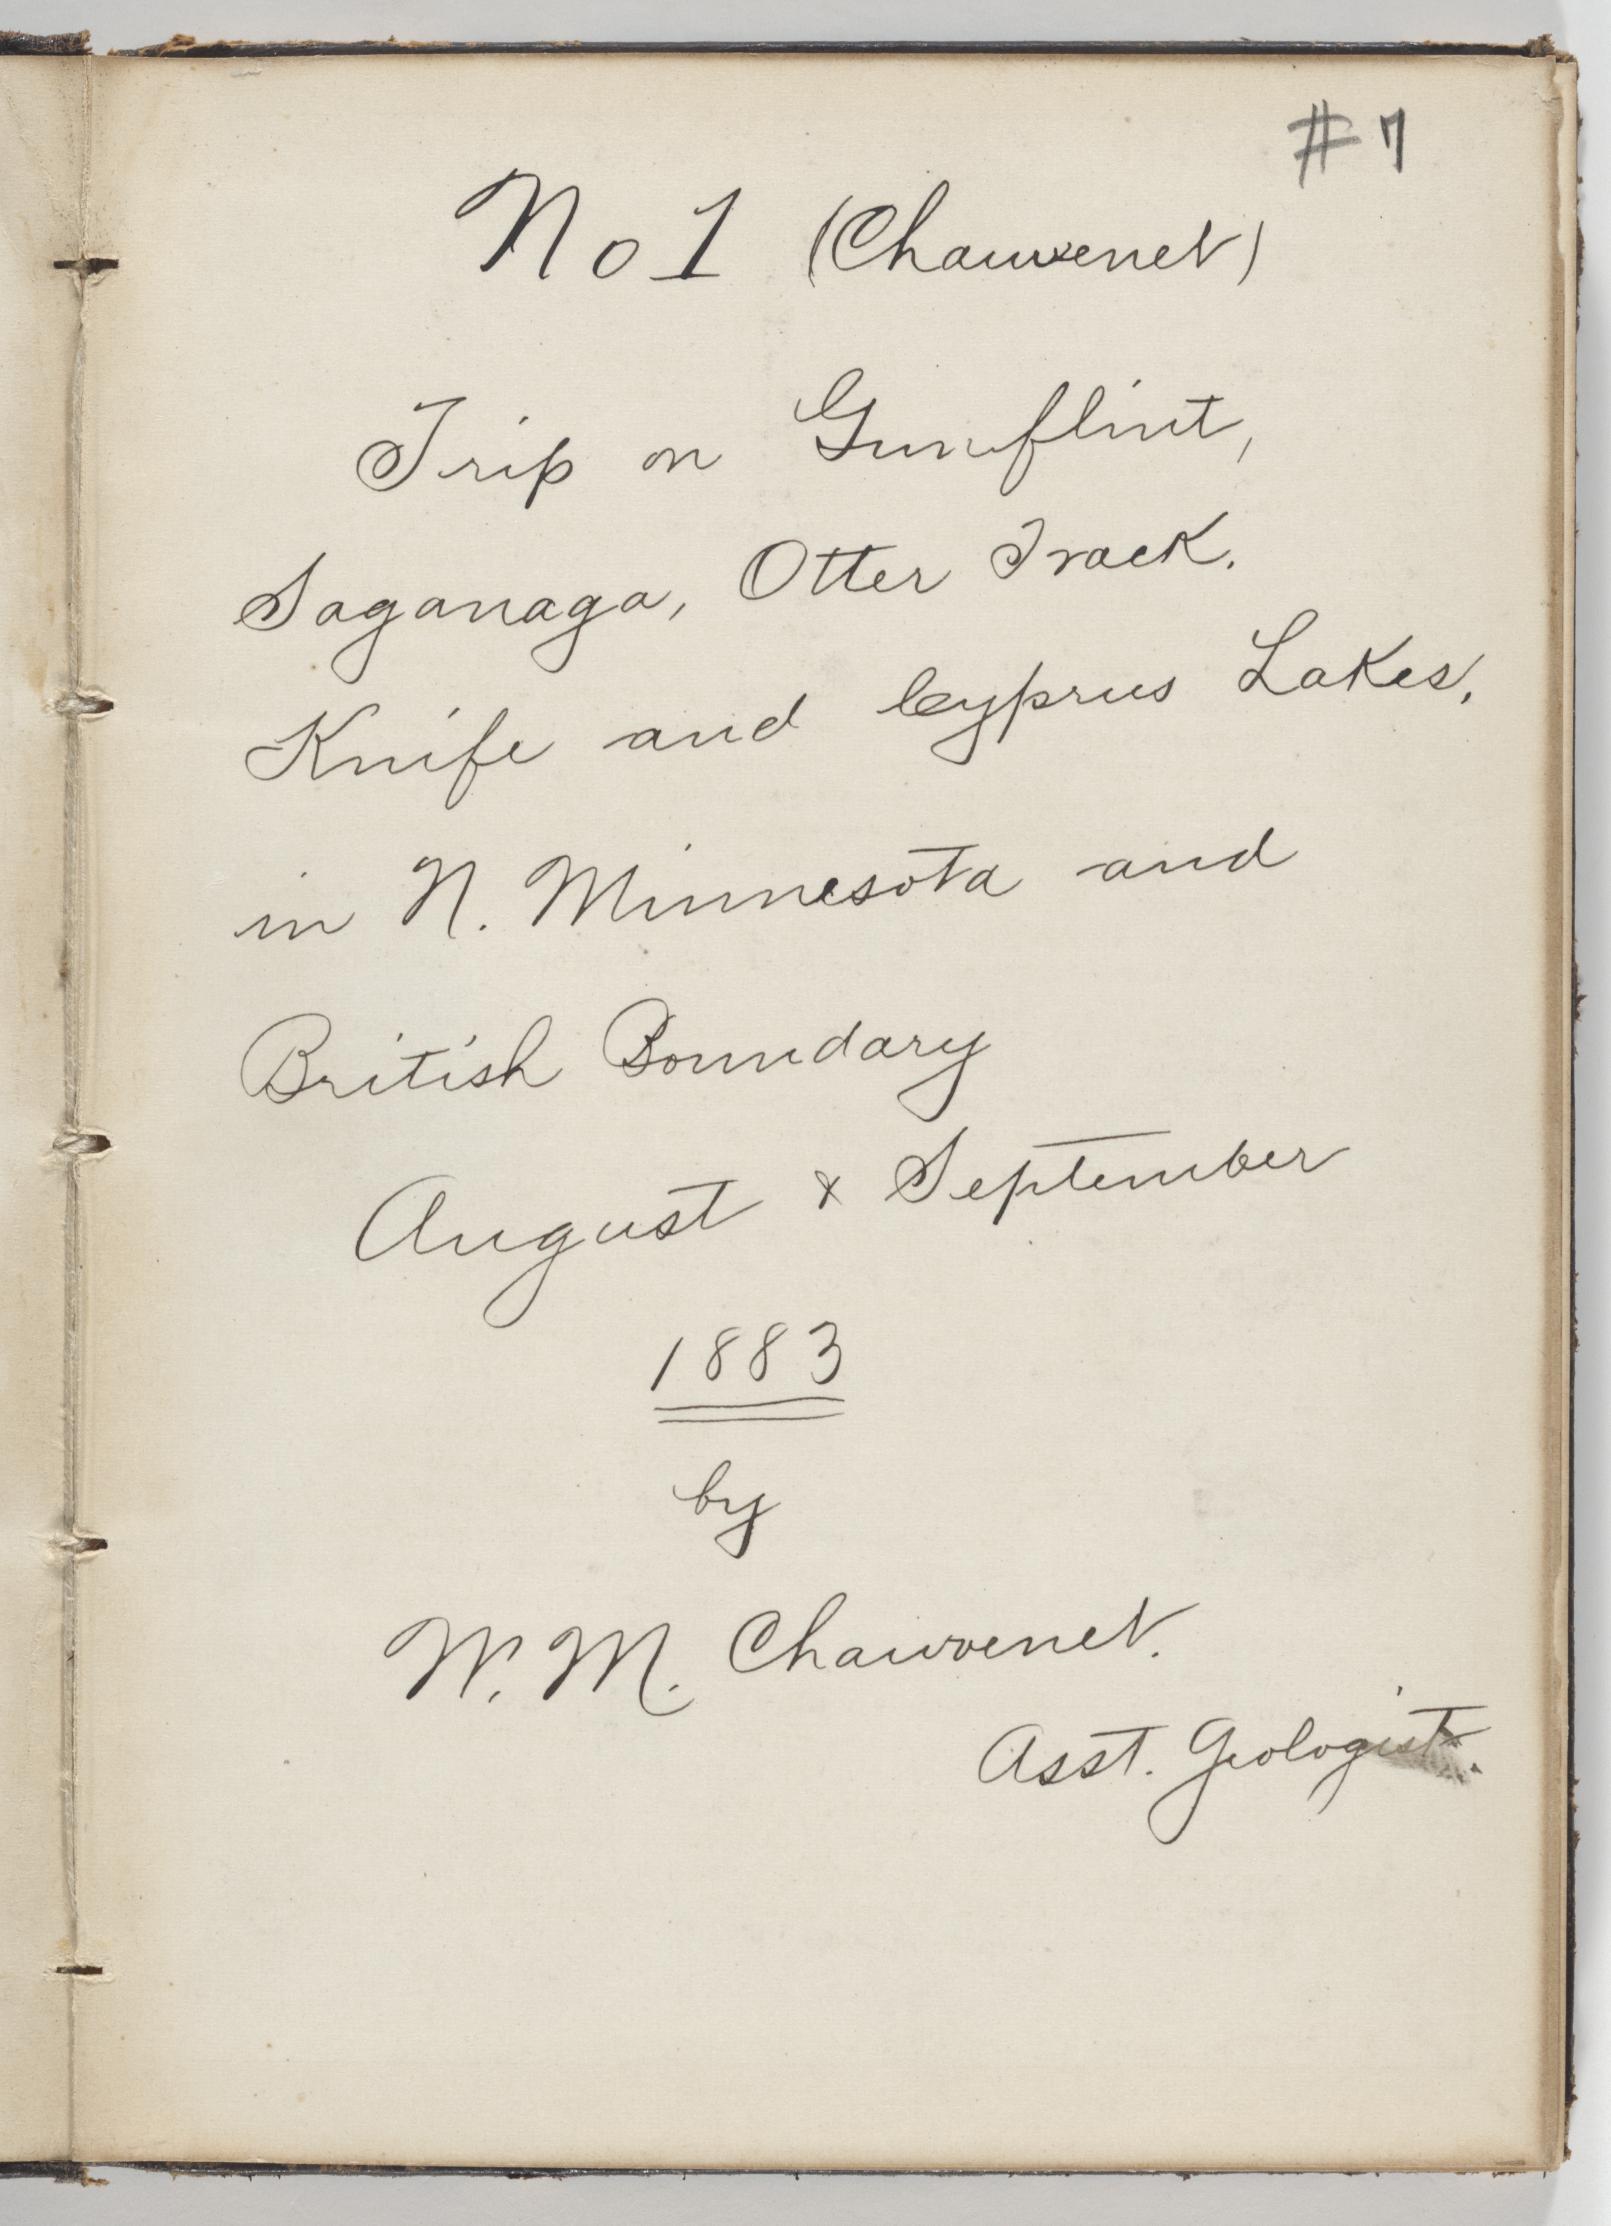 # 7
No 1 (Chauvenet)
Trip on Gunflint,
Saganaga, Otter Track.
Knife and Cyprus Lakes,
in N. Minnesota and
British Boundary
August & September
1883
by
W. M. Chauvenet.
Asst. Geologist.